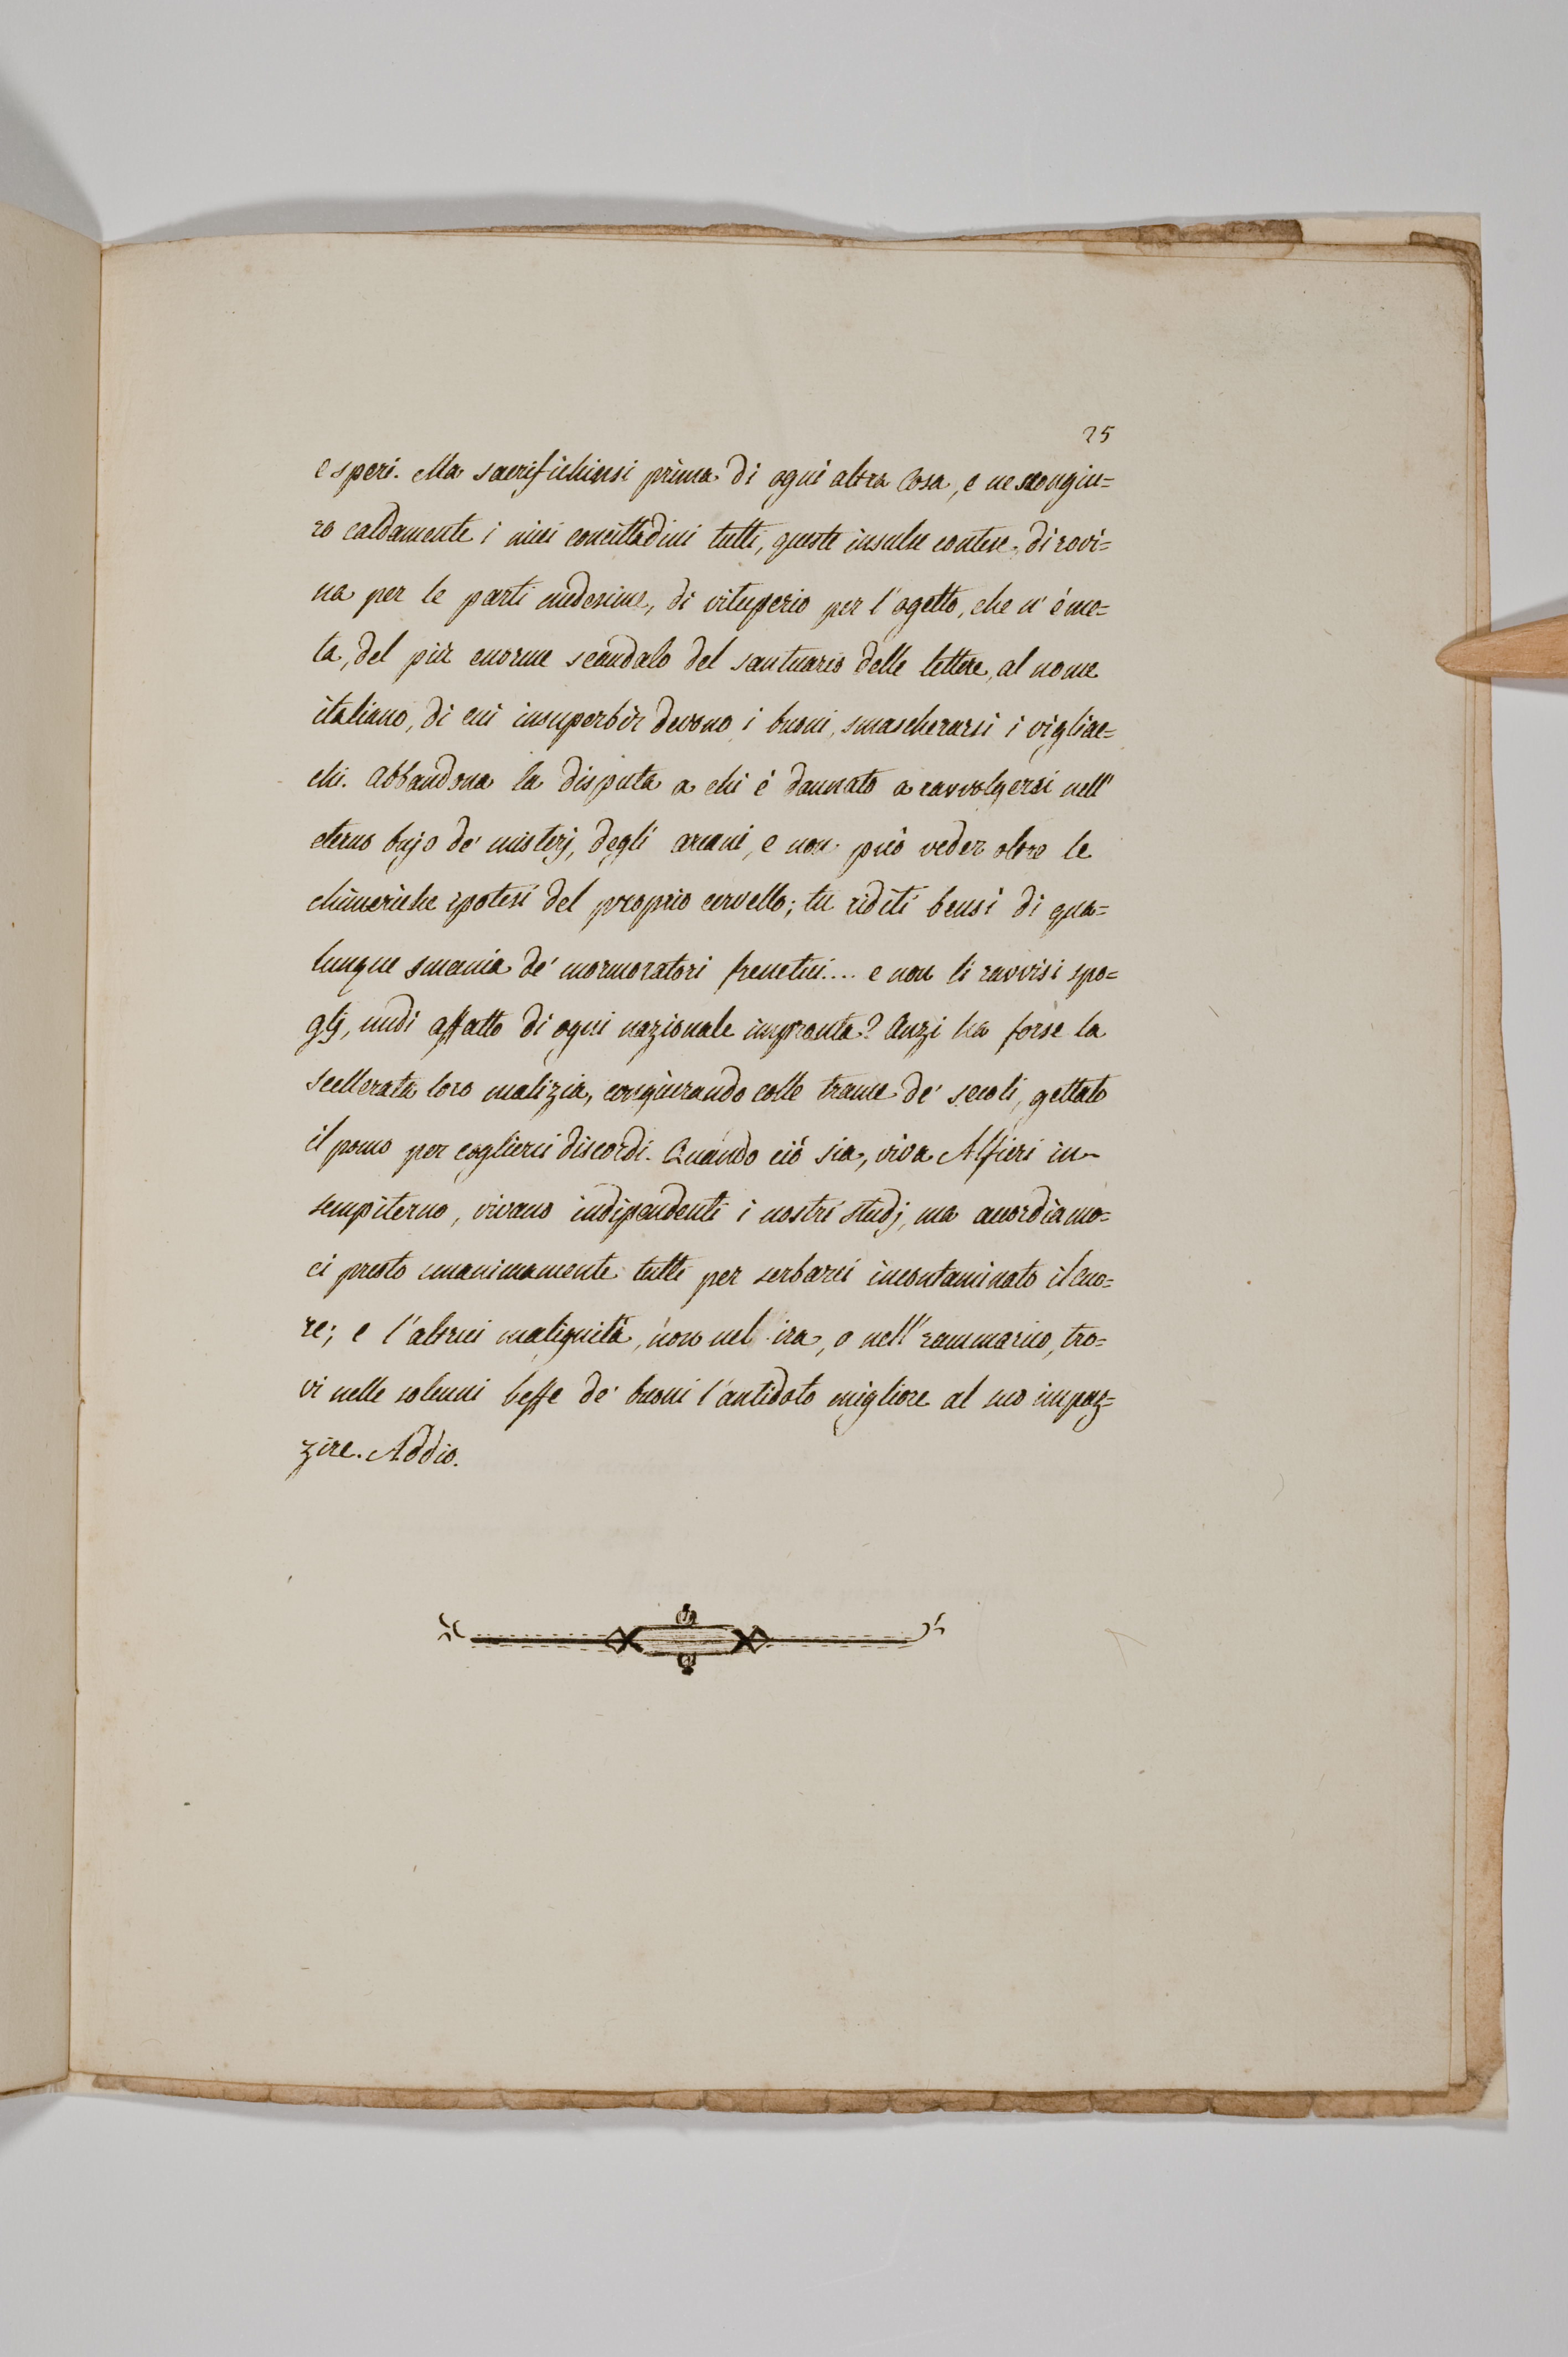 25
e speri. Ma sacrifichinsi prima di ogni altra cosa, e ne scongiu=
ro caldamente i miei concittadini tutti, queste insulse contese, di rovi=
na per le parti medesime, di vituperio per l'ogetto, che n'è me=
ta, del più enorme scandalo del santuario delle lettere, al nome
italiano, di cui insuperbir devono i buoni, smascherarsi i vigliac=
chi. Abbandona la disputa a chi è dannato a ravvolgersi nell'
eterno bujo de' misterj, degli arcani, e non può veder oltre le
chimeriche ipotesi del proprio cervello; tu riditi bensì di qua=
lunque smania de' mormoratori frenetici.... e non li ravvisi spo=
glj, nudi affatto di ogni nazionale impronta? Anzi ha forse la
scellerata loro malizia, congiurando colle trame de' secoli, gettato
il pomo per coglierci discordi. Quando ciò sia, viva Alfieri in-
sempiterno, vivano indipendenti i nostri studj, ma accordiamo=
ci presto unanimamente tutti per serbarci incontaminato il cuo=
re; e l'altrui malignità, non nel ira, o nell'rammarico, tro=
vi nelle solenni beffe de' buoni l'antidoto migliore al suo impaz=
zire. Addio.